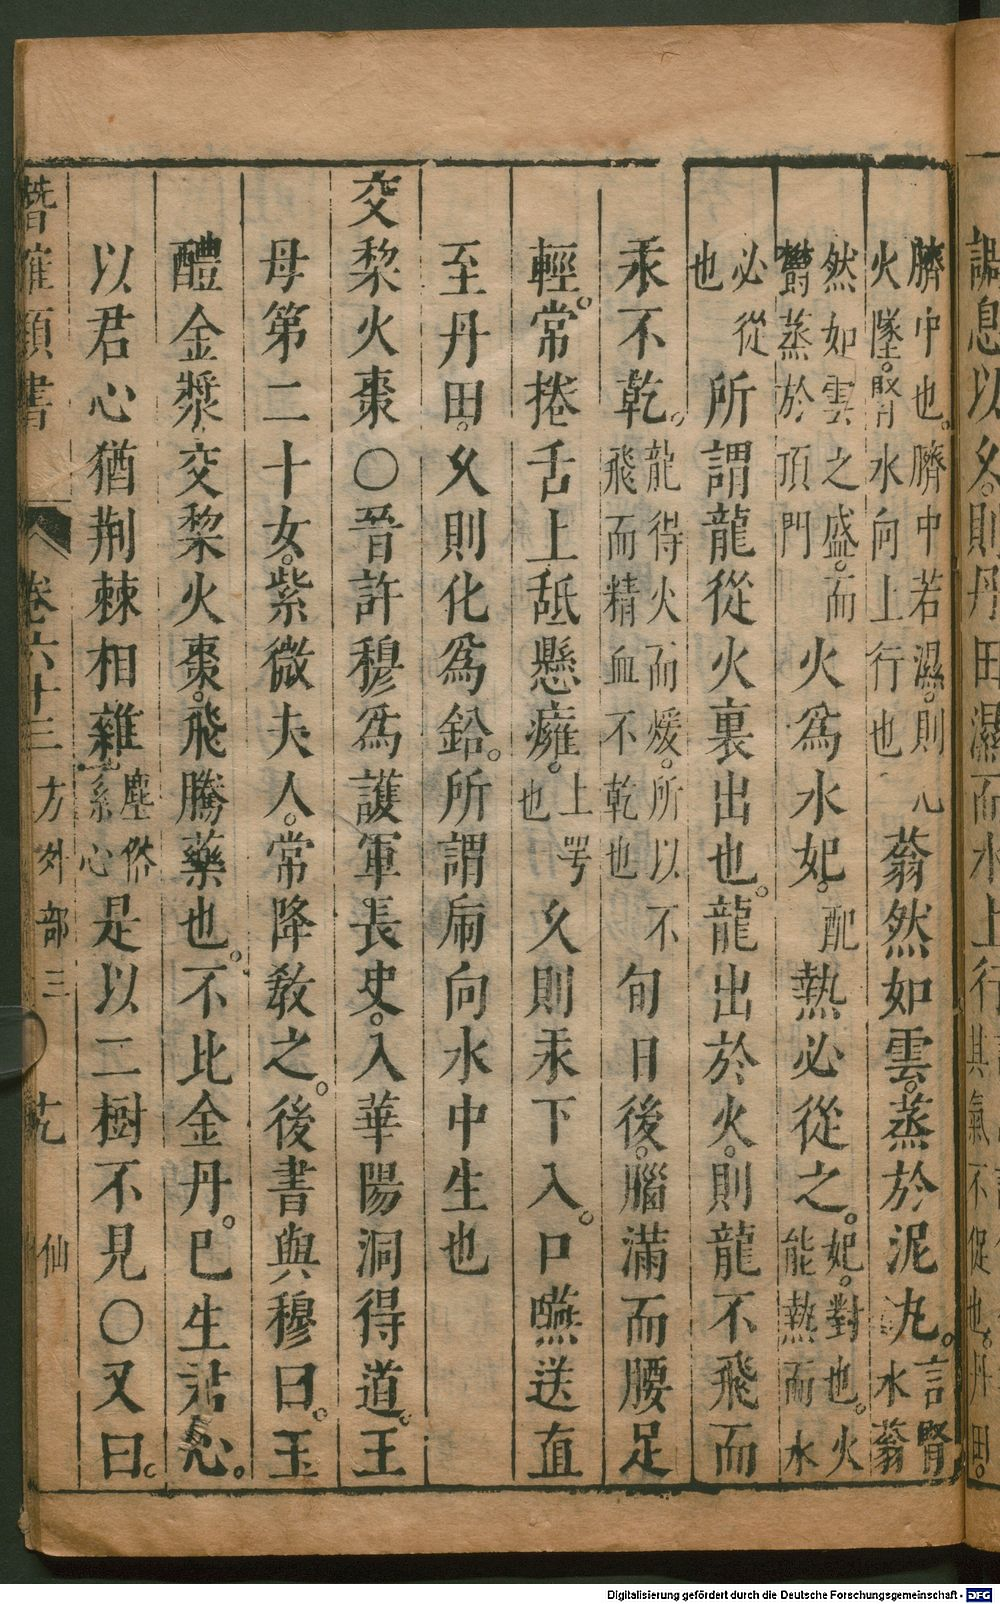 謁息以久。則丹田濕而水上行其氣不促也。丹田。
臍中也。臍中若濕。則心火墜。腎水向上行也 蓊然如雲。蒸於泥丸。言腎水蓊
然如雲之盛。而欝蒸於頂門 火為水妃。配 熱必從之。妃。對也。火能熱而水
必從也 所謂龍從火裏出也。龍出於火。則龍不飛而
汞不乾。龍得火而煖。所以不飛而精血不乾也 旬日後。腦滿而腰足
輕。常捲舌上舐懸癰。上咢也 久則汞下入。口嚥送直
至丹田。久則化為鉛。所謂鉛向水中生也
交梨火棗○晉許穆為護軍長史。入華陽洞得道。王
母第二十女。紫微夫人。常降教之。後書與穆曰。玉
醴金漿。交梨火棗。飛騰藥也。不比金丹。巳生君心。
以君心猶荆棘相雜。塵俗累心 是以二樹不見○又曰。
潛確類書 卷六十三 方外部三 仙
Digitalisierung gefördert durch die Deutsche Forschungsgemeinschaft - DFG